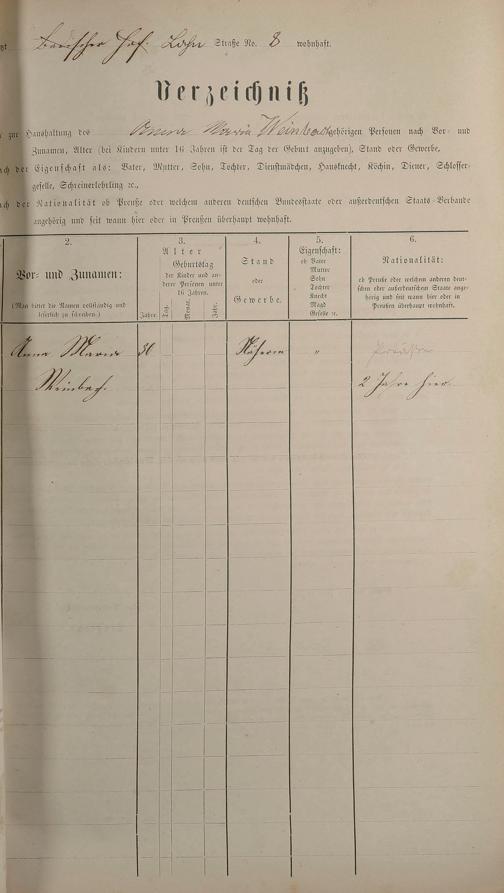 Hof. Lahn Straße No. 8 wohnhaft.
Verzeichniß
zur Haushaltung des Anna Maria Weinbach gehörigen Personen nach Vor- und
Zunamen, Alter (bei Kindern unter 16 Jahren ist der Tag der Geburt anzugeben), Stand oder Gewerbe,
der Eigenschaft als: Vater, Mutter, Sohn, Tochter, Dienstmädchen, Hausknecht, Köchin, Diener, Schlosser-
geselle, Schreinerlehrling ꝛc.,
der Nationalität ob Preuße oder welchem anderen deutschen Bundesstaate oder außerdeutschen Staats-Verbande
angehörig und seit wann hier oder in Preußen überhaupt wohnhaft.
2. 3. 4. 5. 6.
Vor- und Zunamen:
(Man bittet die Namen vollständig und
leserlich zu schreiben.)
Alter
Geburtstag
der Kinder und an-
derer Personen unter
16 Jahren.
Jahre. Tag. Monat. Jahr.
Stand
oder
Gewerbe.
Eigenschaft:
ob Vater
Mutter
Sohn
Tochter
Knecht
Magd
Geselle ꝛc.
Nationalität:
ob Preuße oder welchem anderen deut-
schen oder außerdeutschen Staate ange-
hörig und seit wann hier oder in
Preußen überhaupt wohnhaft.
Anna Maria 36 Näherin " Preußin
Weinbach. 2 Jahre hier.